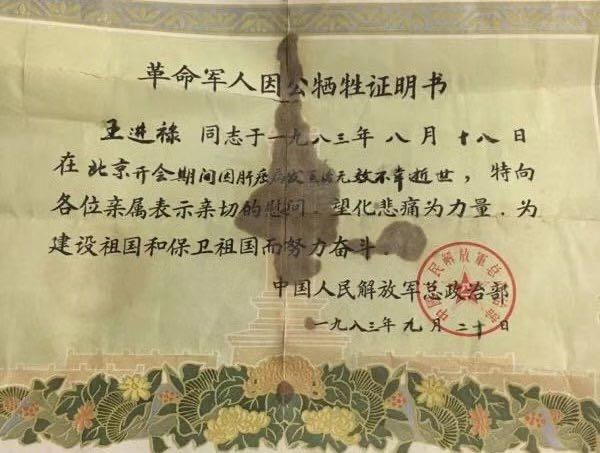 革命军人因公牺牲证明书
王进禄 同志于一九八三年八月十八日
在北京开会期间因肝癌病发医治无效不幸逝世，特向
各位亲属表示亲切的慰问．望化悲痛为力量．为
建设祖国和保卫祖国而努力奋斗．
中国人民解放军总政治部
一九八三年九月二十日
中国人民解放軍总政治部